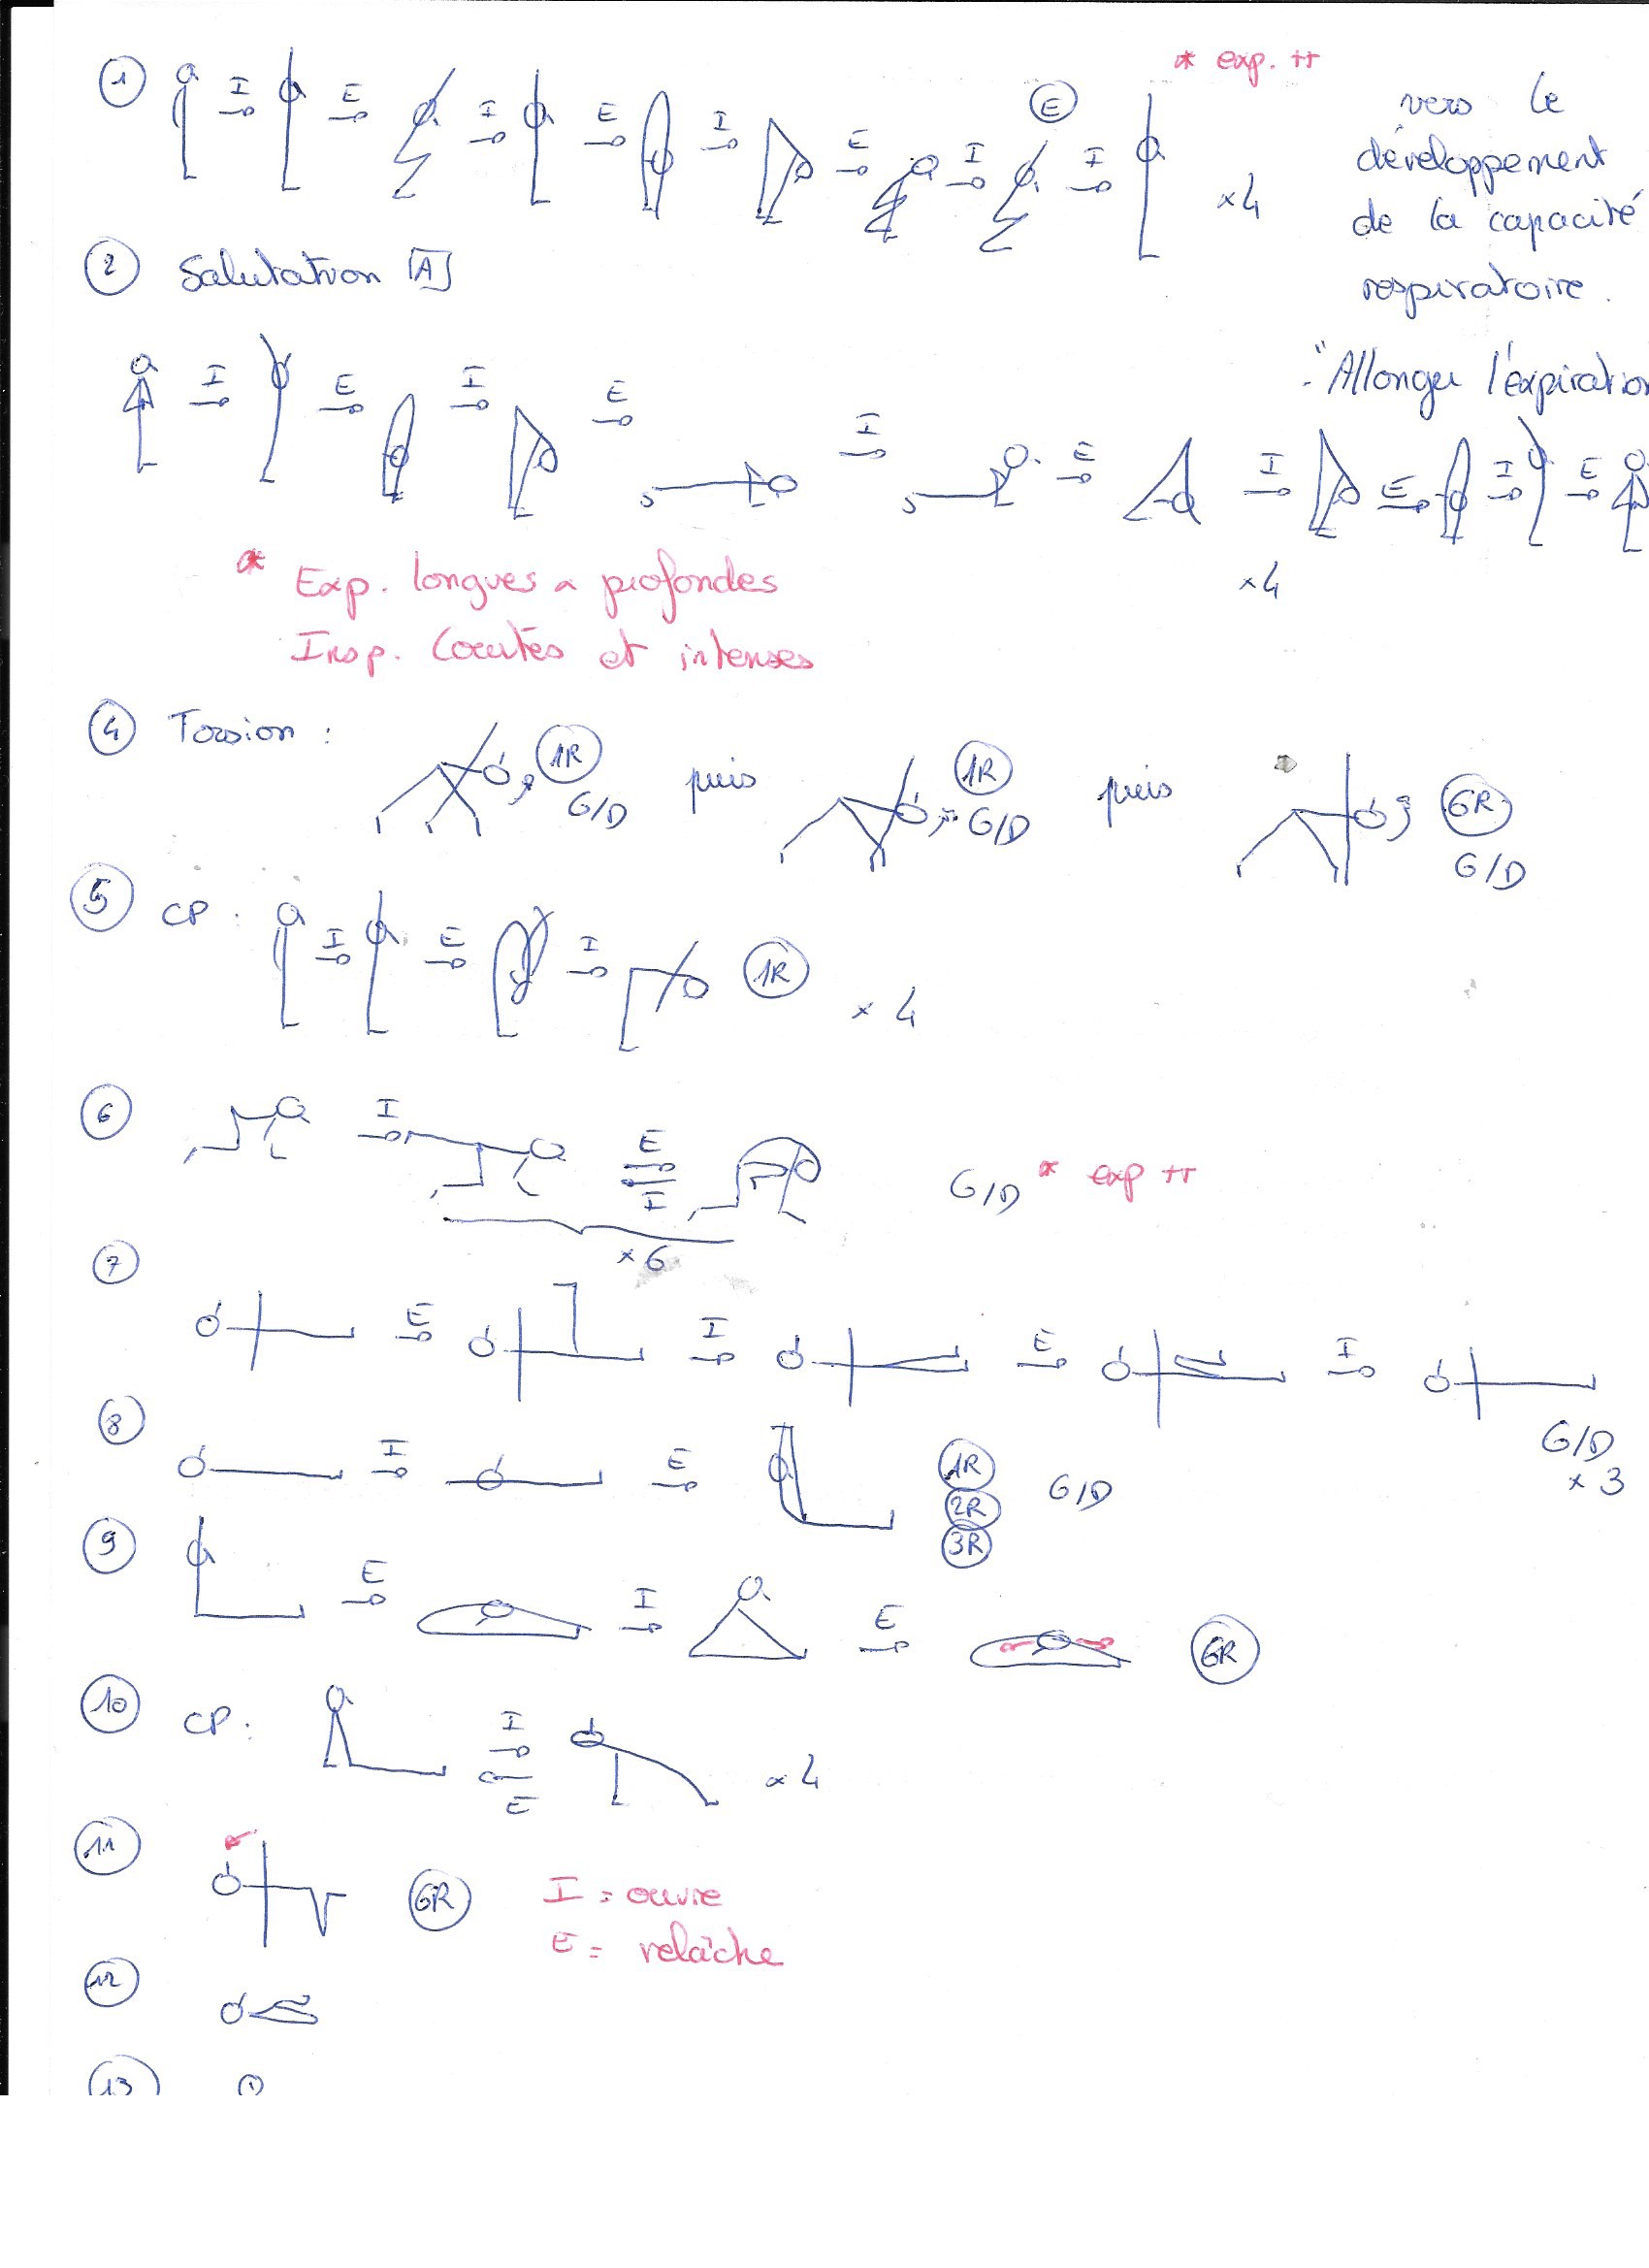 * exp. ++
1 I E I E I E I E I ×4
vers le
développement
de la capacité
respiratoire.
2 Salutation A
"Allonger l'expiration
I E I E I E I E I E
×4
* Exp. longues ~ profondes
Insp. Courtes et intenses
4 Torsion : 1R G/D puis 1R G/D puis 6R G/D
5 CP : I E I 1R × 4
6 I E I G/D * exp ++
× 6
7 E I E I
G/D
× 3
8 I E 1R G/D
2R
3R
9 E I E 6R
10 CP : I E × 4
11 6R I = ouvre
E = relâche
12
13